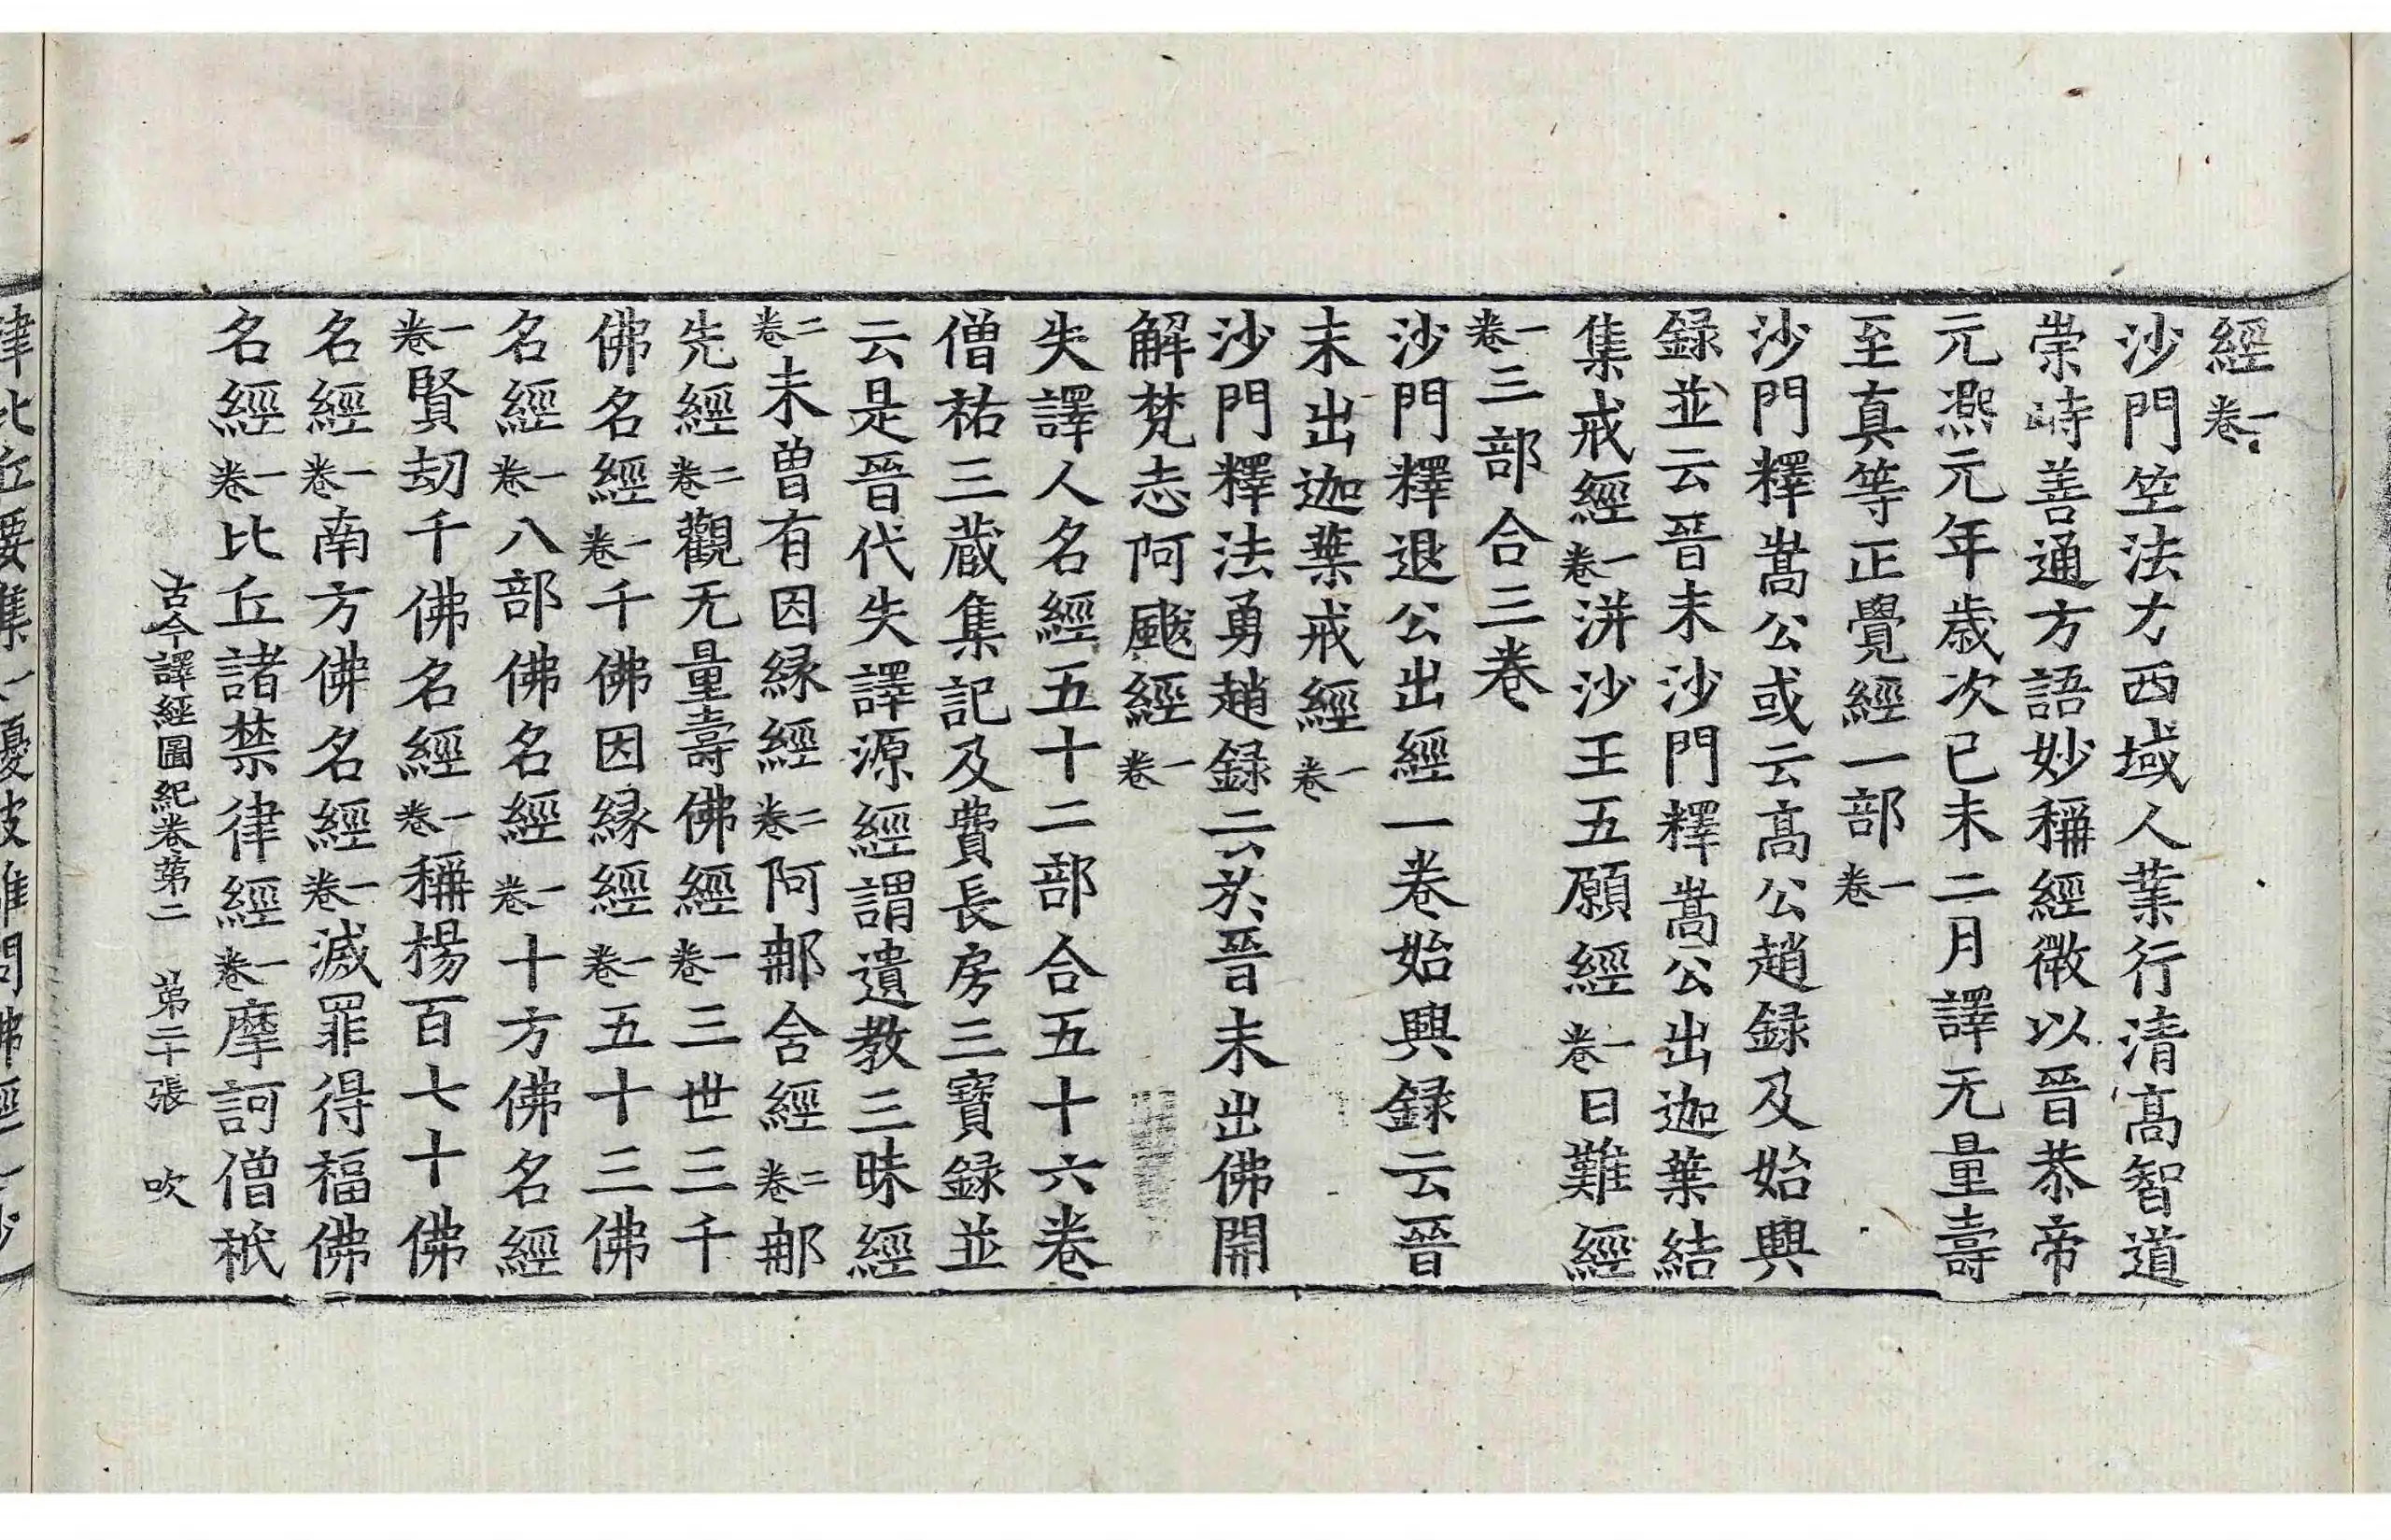 經一卷
沙門竺法力西域人業行清高智道
崇峙善通方語妙稱經微以晉恭帝
元熈元年歲次已未二月譯无量壽
至真等正覺經一部一卷
沙門釋嵩公或云高公趙録及始興
録並云晉末沙門釋嵩公出迦葉結
集戒經一卷洴沙王五願經一卷日難經
一卷三部合三卷
沙門釋退公出經一卷始興録云晉
末出迦葉戒經一卷
沙門釋法勇趙録云於晉末出佛開
解梵志阿颰經一卷
失譯人名經五十二部合五十六卷
僧祐三藏集記及費長房三寶録並
云是晉代失譯源經謂遺教三昧經
二卷未曾有因緣經二卷阿那含經二卷那
先經二卷觀无量壽佛經一卷三世三千
佛名經一卷千佛因緣經一卷五十三佛
名經一卷八部佛名經一卷十方佛名經
一卷賢劫千佛名經一卷稱楊百七十佛
名經一卷南方佛名經一卷滅罪得福佛
名經一卷比丘諸禁律經一卷摩訶僧祇
古今譯經圖紀卷第二 第二十張 吹